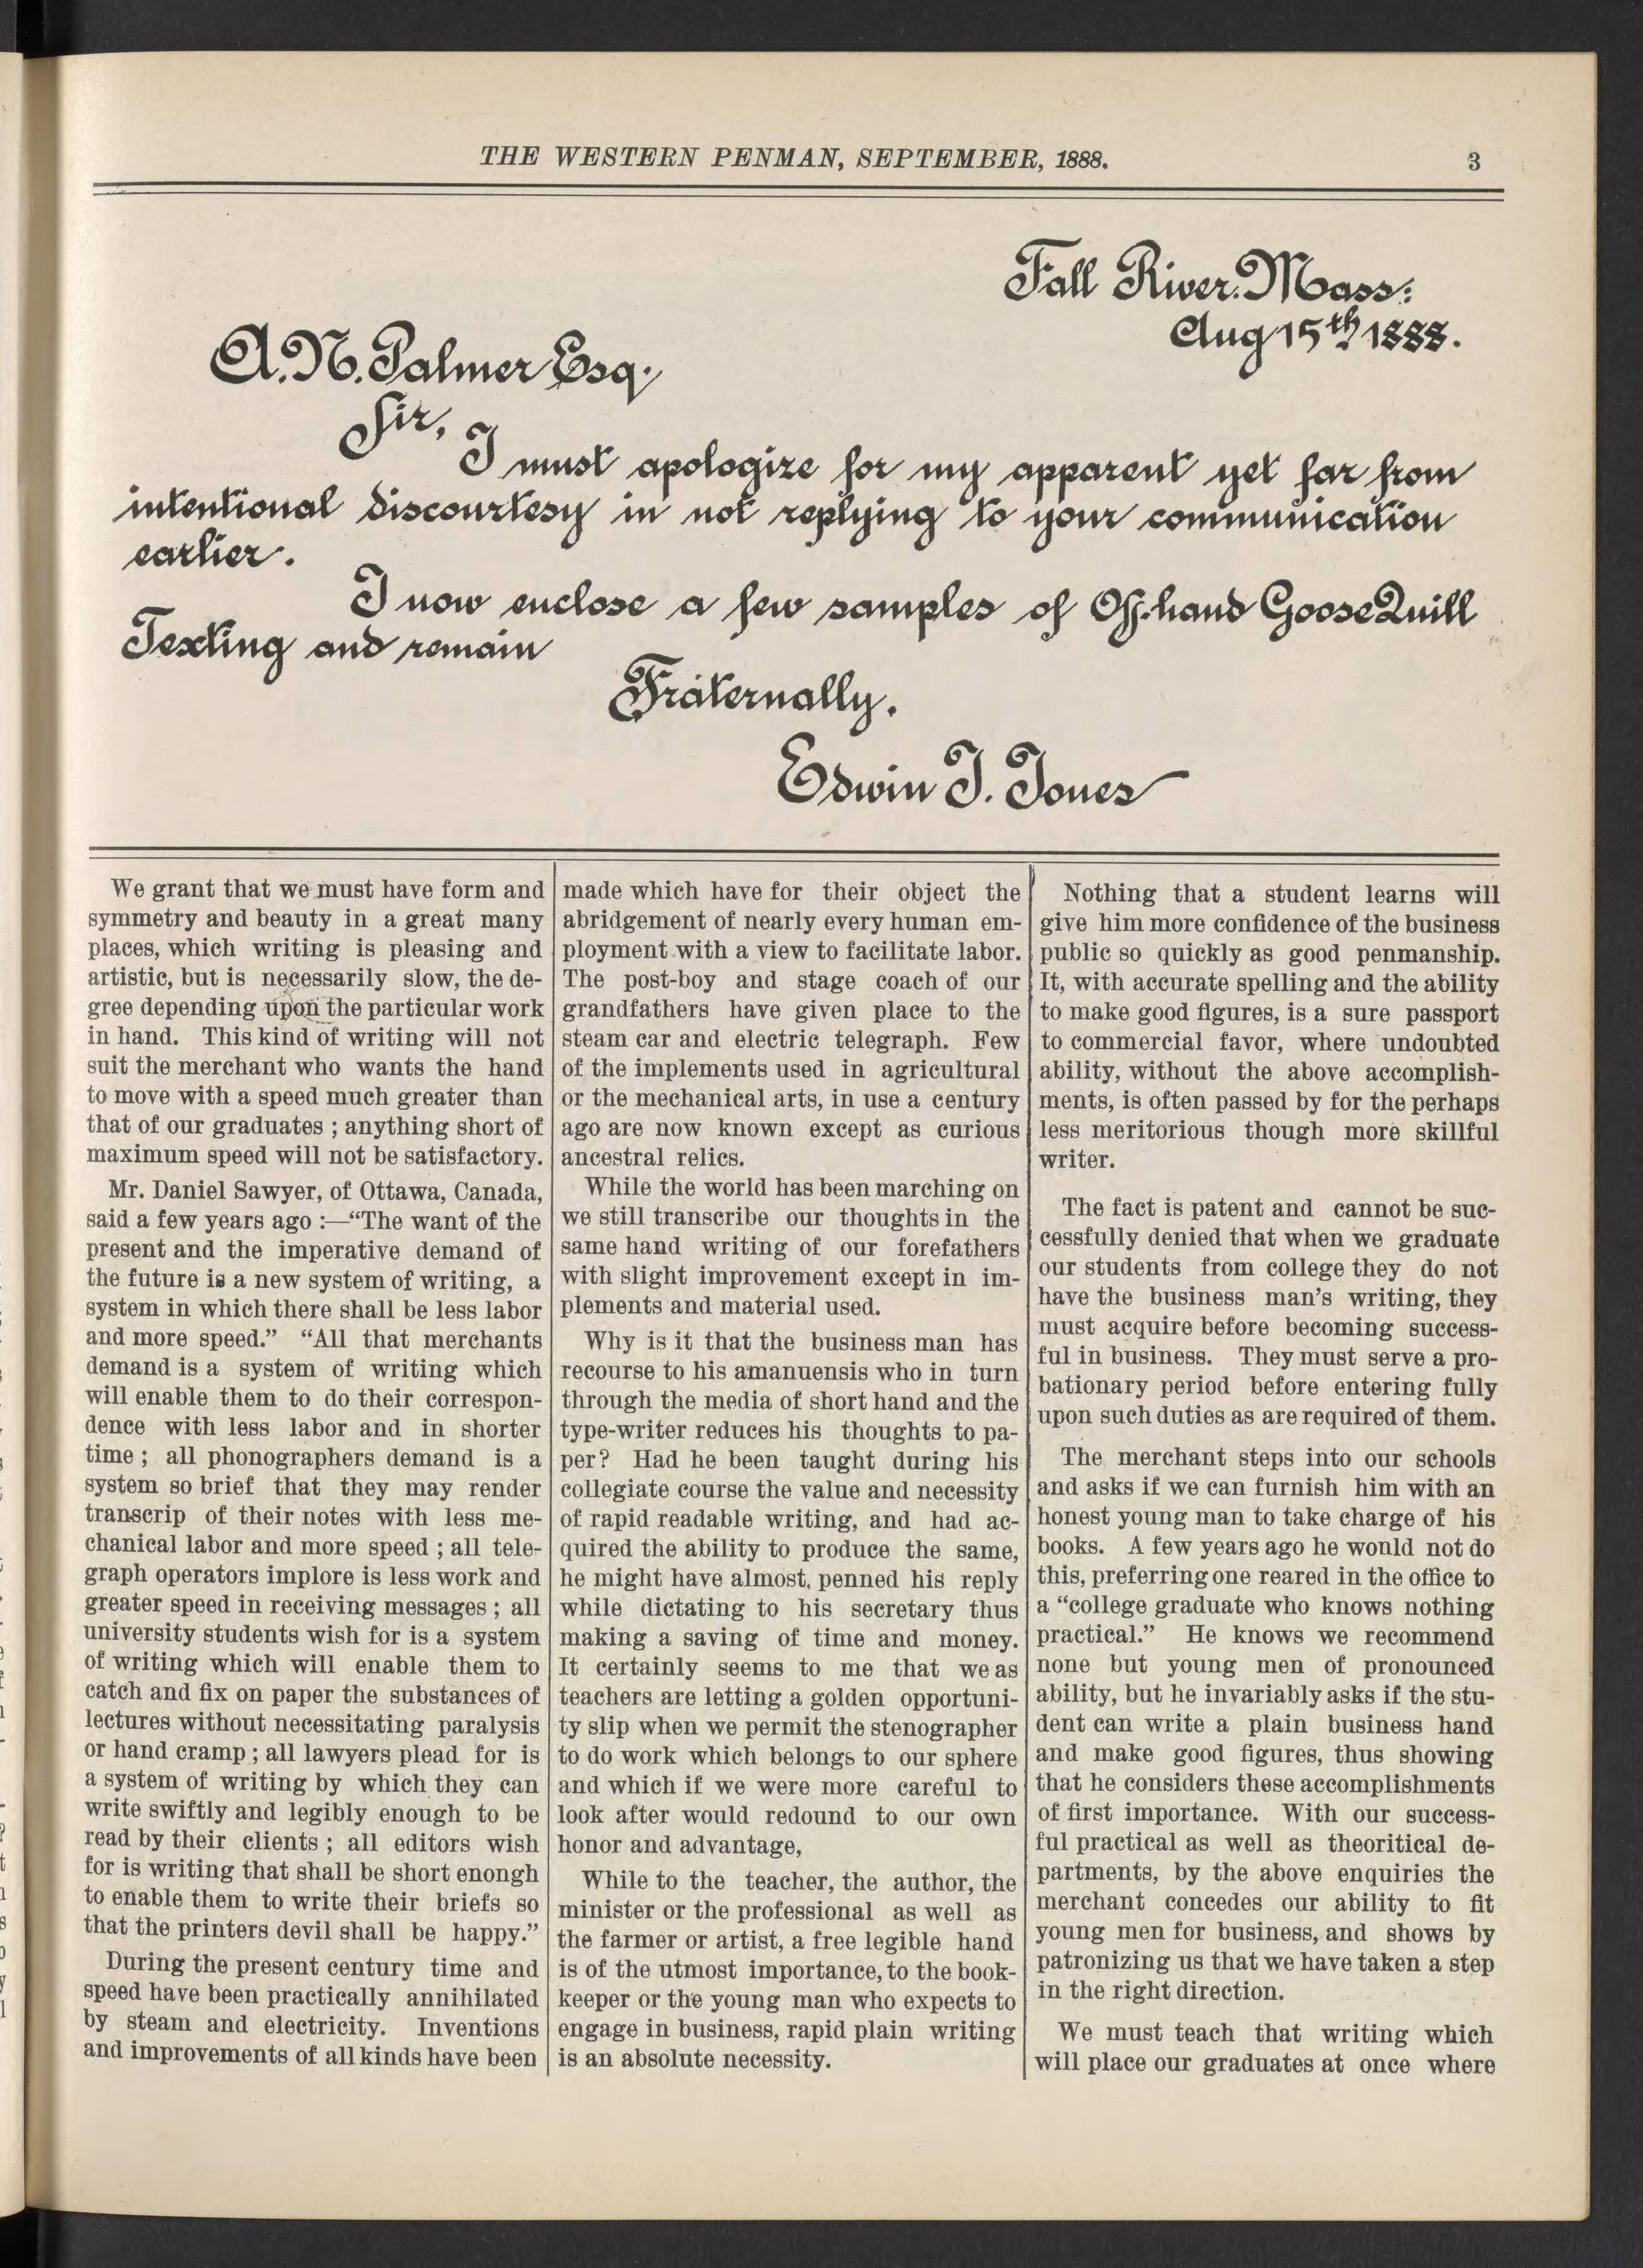 THE WESTERN PENMAN, SEPTEMBER, 1888. 3
Fall River. Mass:
Aug 15th 1888.
A. N. Palmer Esq.
Sir,
I must apologize for my apparent yet far from
intentional discourtesy in not replying to your communication
earlier.
I now enclose a few samples of Off-hand Goose Quill
Texting and remain
Fraternally.
Edwin I. Jones
We grant that we must have form and
symmetry and beauty in a great many
places, which writing is pleasing and
artistic, but is necessarily slow, the de-
gree depending upon the particular work
in hand. This kind of writing will not
suit the merchant who wants the hand
to move with a speed much greater than
that of our graduates ; anything short of
maximum speed will not be satisfactory.
Mr. Daniel Sawyer, of Ottawa, Canada,
said a few years ago :—“The want of the
present and the imperative demand of
the future is a new system of writing, a
system in which there shall be less labor
and more speed.” “All that merchants
demand is a system of writing which
will enable them to do their correspon-
dence with less labor and in shorter
time ; all phonographers demand is a
system so brief that they may render
transcrip of their notes with less me-
chanical labor and more speed ; all tele-
graph operators implore is less work and
greater speed in receiving messages ; all
university students wish for is a system
of writing which will enable them to
catch and fix on paper the substances of
lectures without necessitating paralysis
or hand cramp ; all lawyers plead for is
a system of writing by which they can
write swiftly and legibly enough to be
read by their clients ; all editors wish
for is writing that shall be short enongh
to enable them to write their briefs so
that the printers devil shall be happy.”
During the present century time and
speed have been practically annihilated
by steam and electricity. Inventions
and improvements of all kinds have been
made which have for their object the
abridgement of nearly every human em-
ployment with a view to facilitate labor.
The post-boy and stage coach of our
grandfathers have given place to the
steam car and electric telegraph. Few
of the implements used in agricultural
or the mechanical arts, in use a century
ago are now known except as curious
ancestral relics.
While the world has been marching on
we still transcribe our thoughts in the
same hand writing of our forefathers
with slight improvement except in im-
plements and material used.
Why is it that the business man has
recourse to his amanuensis who in turn
through the media of short hand and the
type-writer reduces his thoughts to pa-
per? Had he been taught during his
collegiate course the value and necessity
of rapid readable writing, and had ac-
quired the ability to produce the same,
he might have almost, penned his reply
while dictating to his secretary thus
making a saving of time and money.
It certainly seems to me that we as
teachers are letting a golden opportuni-
ty slip when we permit the stenographer
to do work which belongs to our sphere
and which if we were more careful to
look after would redound to our own
honor and advantage,
While to the teacher, the author, the
minister or the professional as well as
the farmer or artist, a free legible hand
is of the utmost importance, to the book-
keeper or the young man who expects to
engage in business, rapid plain writing
is an absolute necessity.
Nothing that a student learns will
give him more confidence of the business
public so quickly as good penmanship.
It, with accurate spelling and the ability
to make good figures, is a sure passport
to commercial favor, where undoubted
ability, without the above accomplish-
ments, is often passed by for the perhaps
less meritorious though more skillful
writer.
The fact is patent and cannot be suc-
cessfully denied that when we graduate
our students from college they do not
have the business man’s writing, they
must acquire before becoming success-
ful in business. They must serve a pro-
bationary period before entering fully
upon such duties as are required of them.
The merchant steps into our schools
and asks if we can furnish him with an
honest young man to take charge of his
books. A few years ago he wonld not do
this, preferring one reared in the office to
a “college graduate who knows nothing
practical.” He knows we recommend
none but young men of pronounced
ability, but he invariably asks if the stu-
dent can write a plain business hand
and make good figures, thus showing
that he considers these accomplishments
of first importance. With our success-
ful practical as well as theoritical de-
partments, by the above enquiries the
merchant concedes our ability to fit
young men for business, and shows by
patronizing us that we have taken a step
in the right direction.
We must teach that writing which
will place our graduates at once where